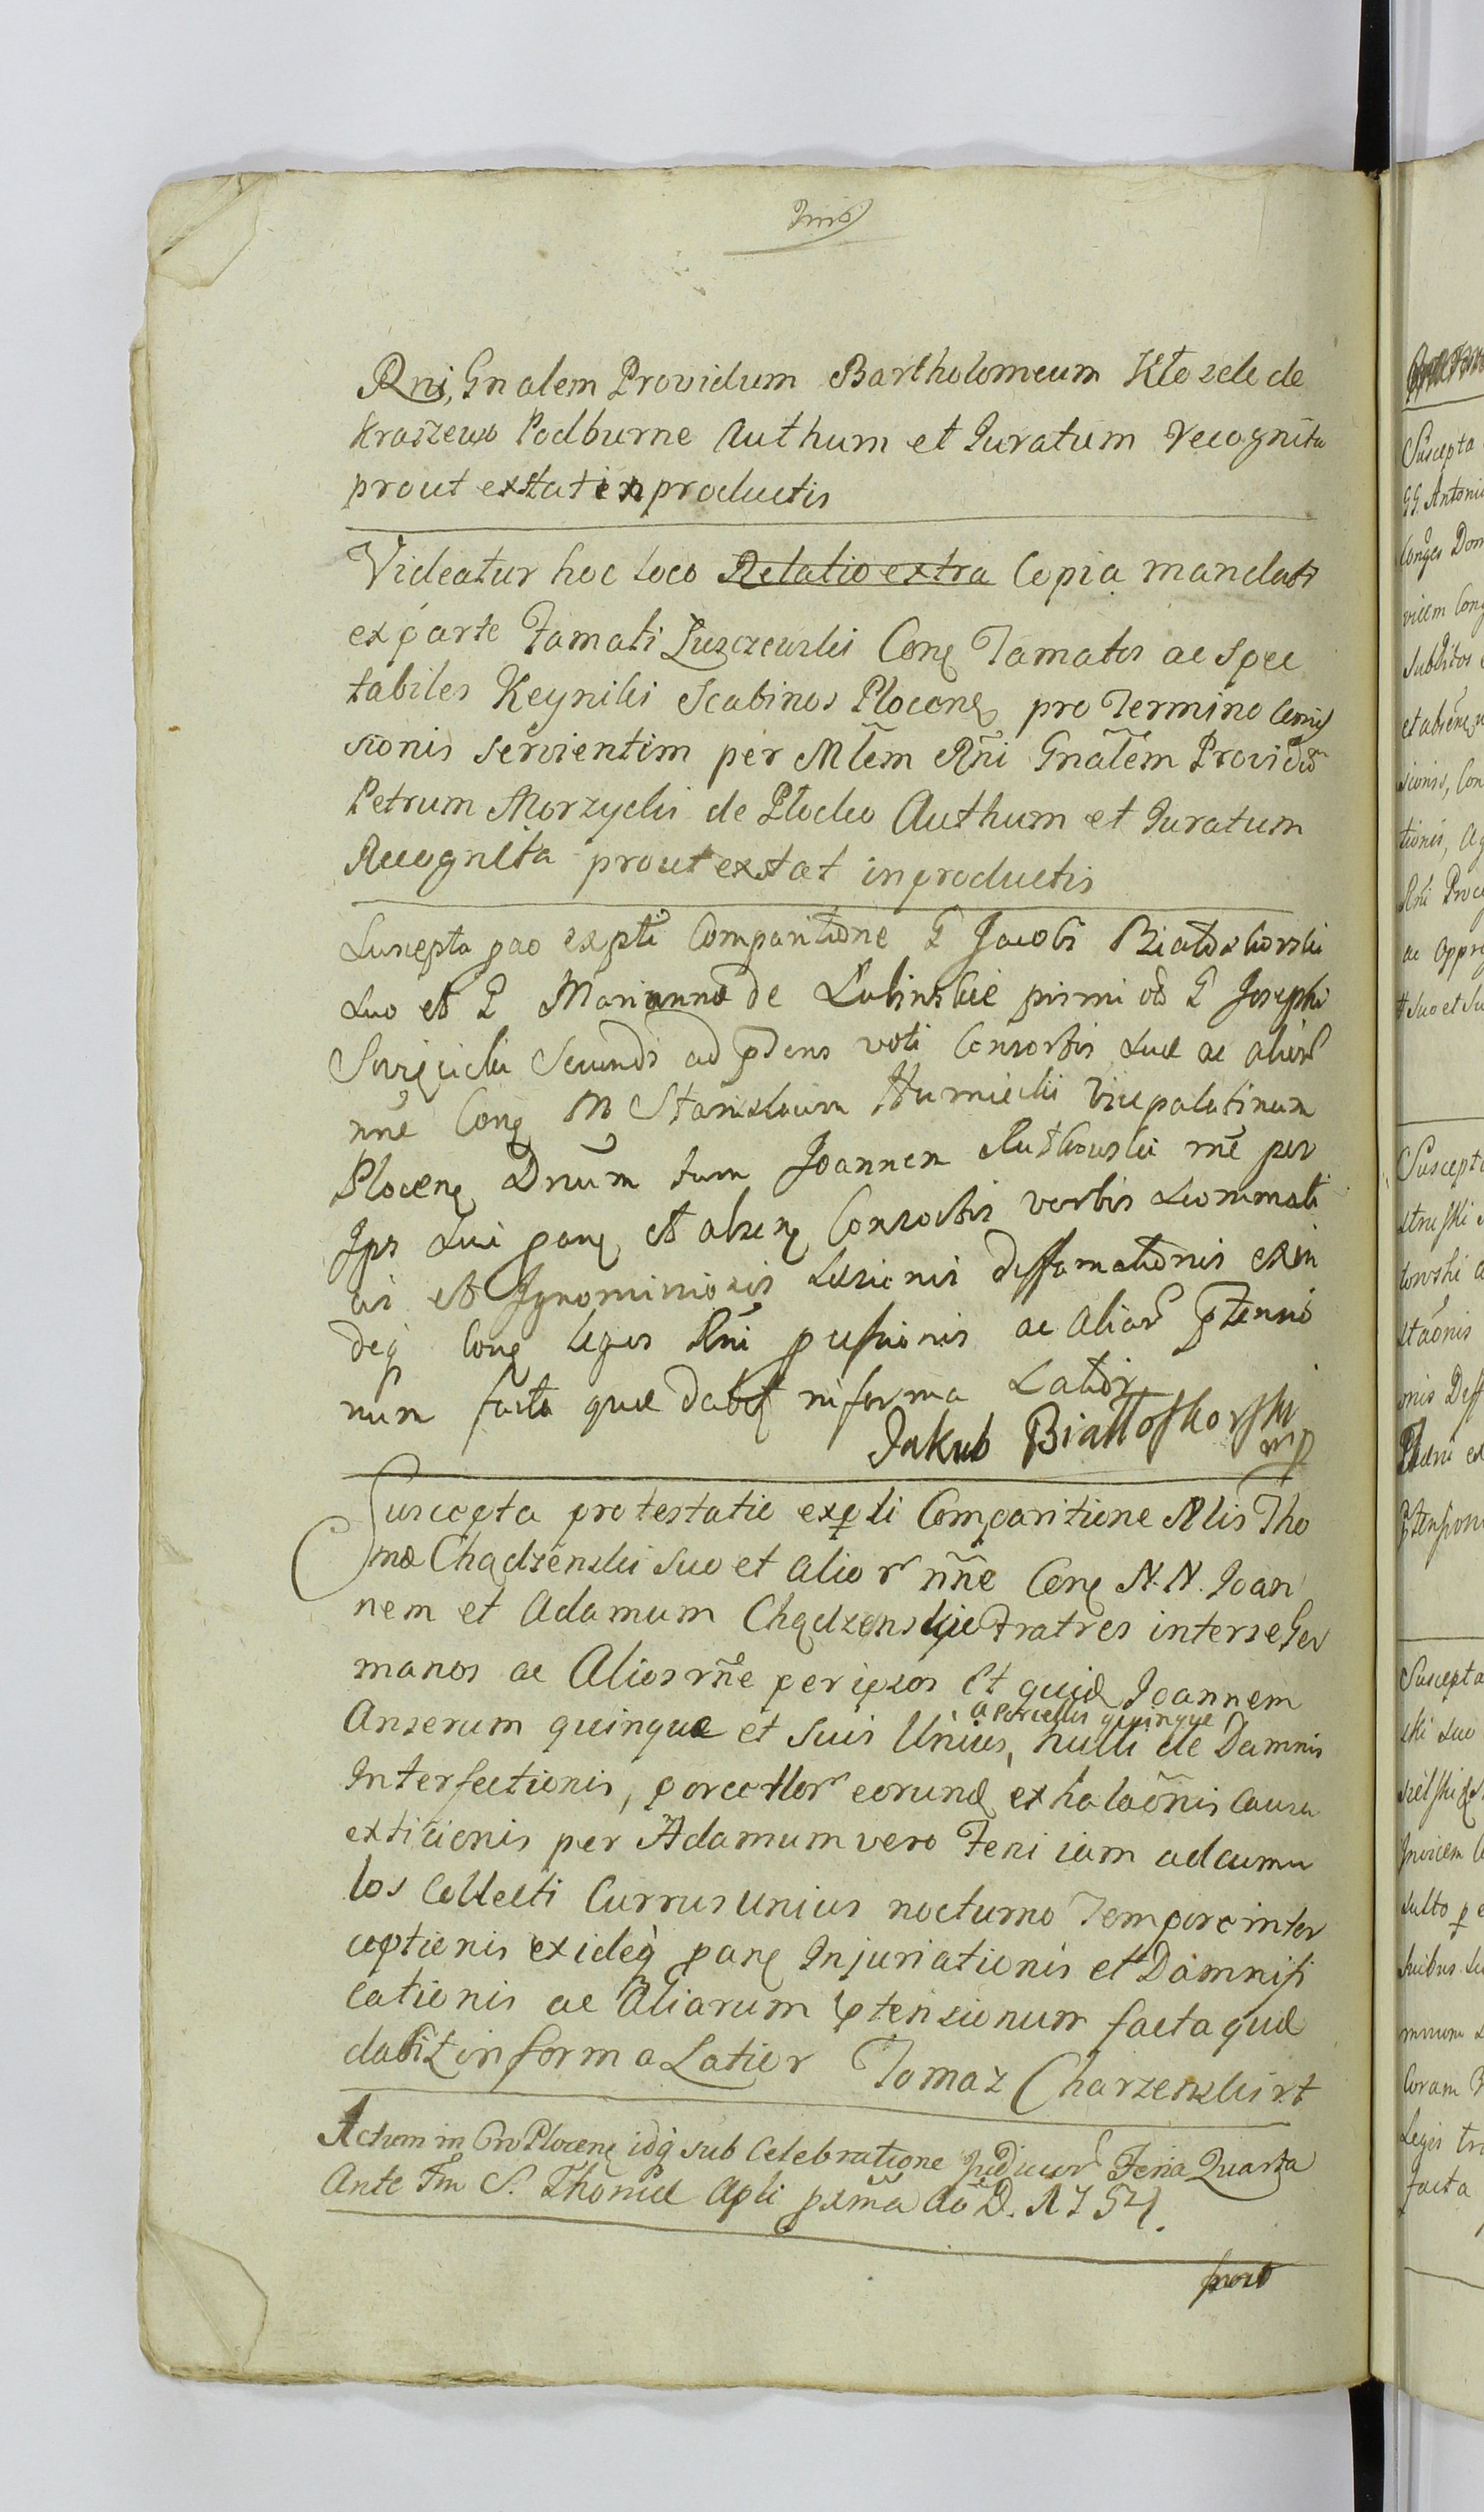 Rni, Gnalem Providum Bartholomeum Kłosek de
Kraszewo Podburne Authum et Juratum recognita
prout exstat in productis
Videatur hoc loco Relatio extra Copia mandati
ex parte Famati Luszczewski Conꝗ Famatos ac Spec
tabiles Keyniki Scabinos Plocenꝗ pro Termino Comis
sionis servientim per Mlem Rñi Gnãlem Providũ
Petrum Morzycki de Płocko Authum et Juratum
Recognita prout exstat in productis
Suscepta pao expti Comparitione G Jacobi Białoskorski
suo et G Mariannæ de Lubinskie primi vo G Josephi
secundi ad pdens voti Consortis suæ ac alior
nñe Conꝗ M Stanislaum Humiecki Vicepalatinum
Plocenꝗ Dnum tum Joannem Rutkowski rñe per
Ips sui panꝗ et absenꝗ Consortis verbis scommati
cis et Ignominiosis Læsionis diffamationis exin
deqꝫ Conꝗ leges Rñi ac aliar ptensio
num facta quæ dabit in forma Latiori
Jakub Białłoskorski
mp
Suscepta protestatio expli Comparitione Nlis Tho
mæ Chądzenski suo et alior nñe Conꝗ N. N. Joan
nem et Adamum Chądzenskie Fratres inter se Ger
manos ac Alios rñe per ipsos Et quidꝫ Joannem
a Porcellis quinque
Anserum quinque et Suis Unius, nulli de Damnis
Interfectionis, porcellor eorundꝫ exhalaõnis causa
extitionis per Adamum vero Feni iam ad cumu
los Collecti Currus unius nocturno Tempore inter
ceptionis exideqꝫ panꝗ Injuriationis et Damnifi
cationis ac Aliarum ptensionum facta quæ
dabit in forma Latior Tomaz Charzenski rt
Actum in Cro Plocenꝗ idqꝫ sub Celebratione Judicior Feria Quarta
Ante Fm S. Thomæ Apli pxma Ao D. 1754.